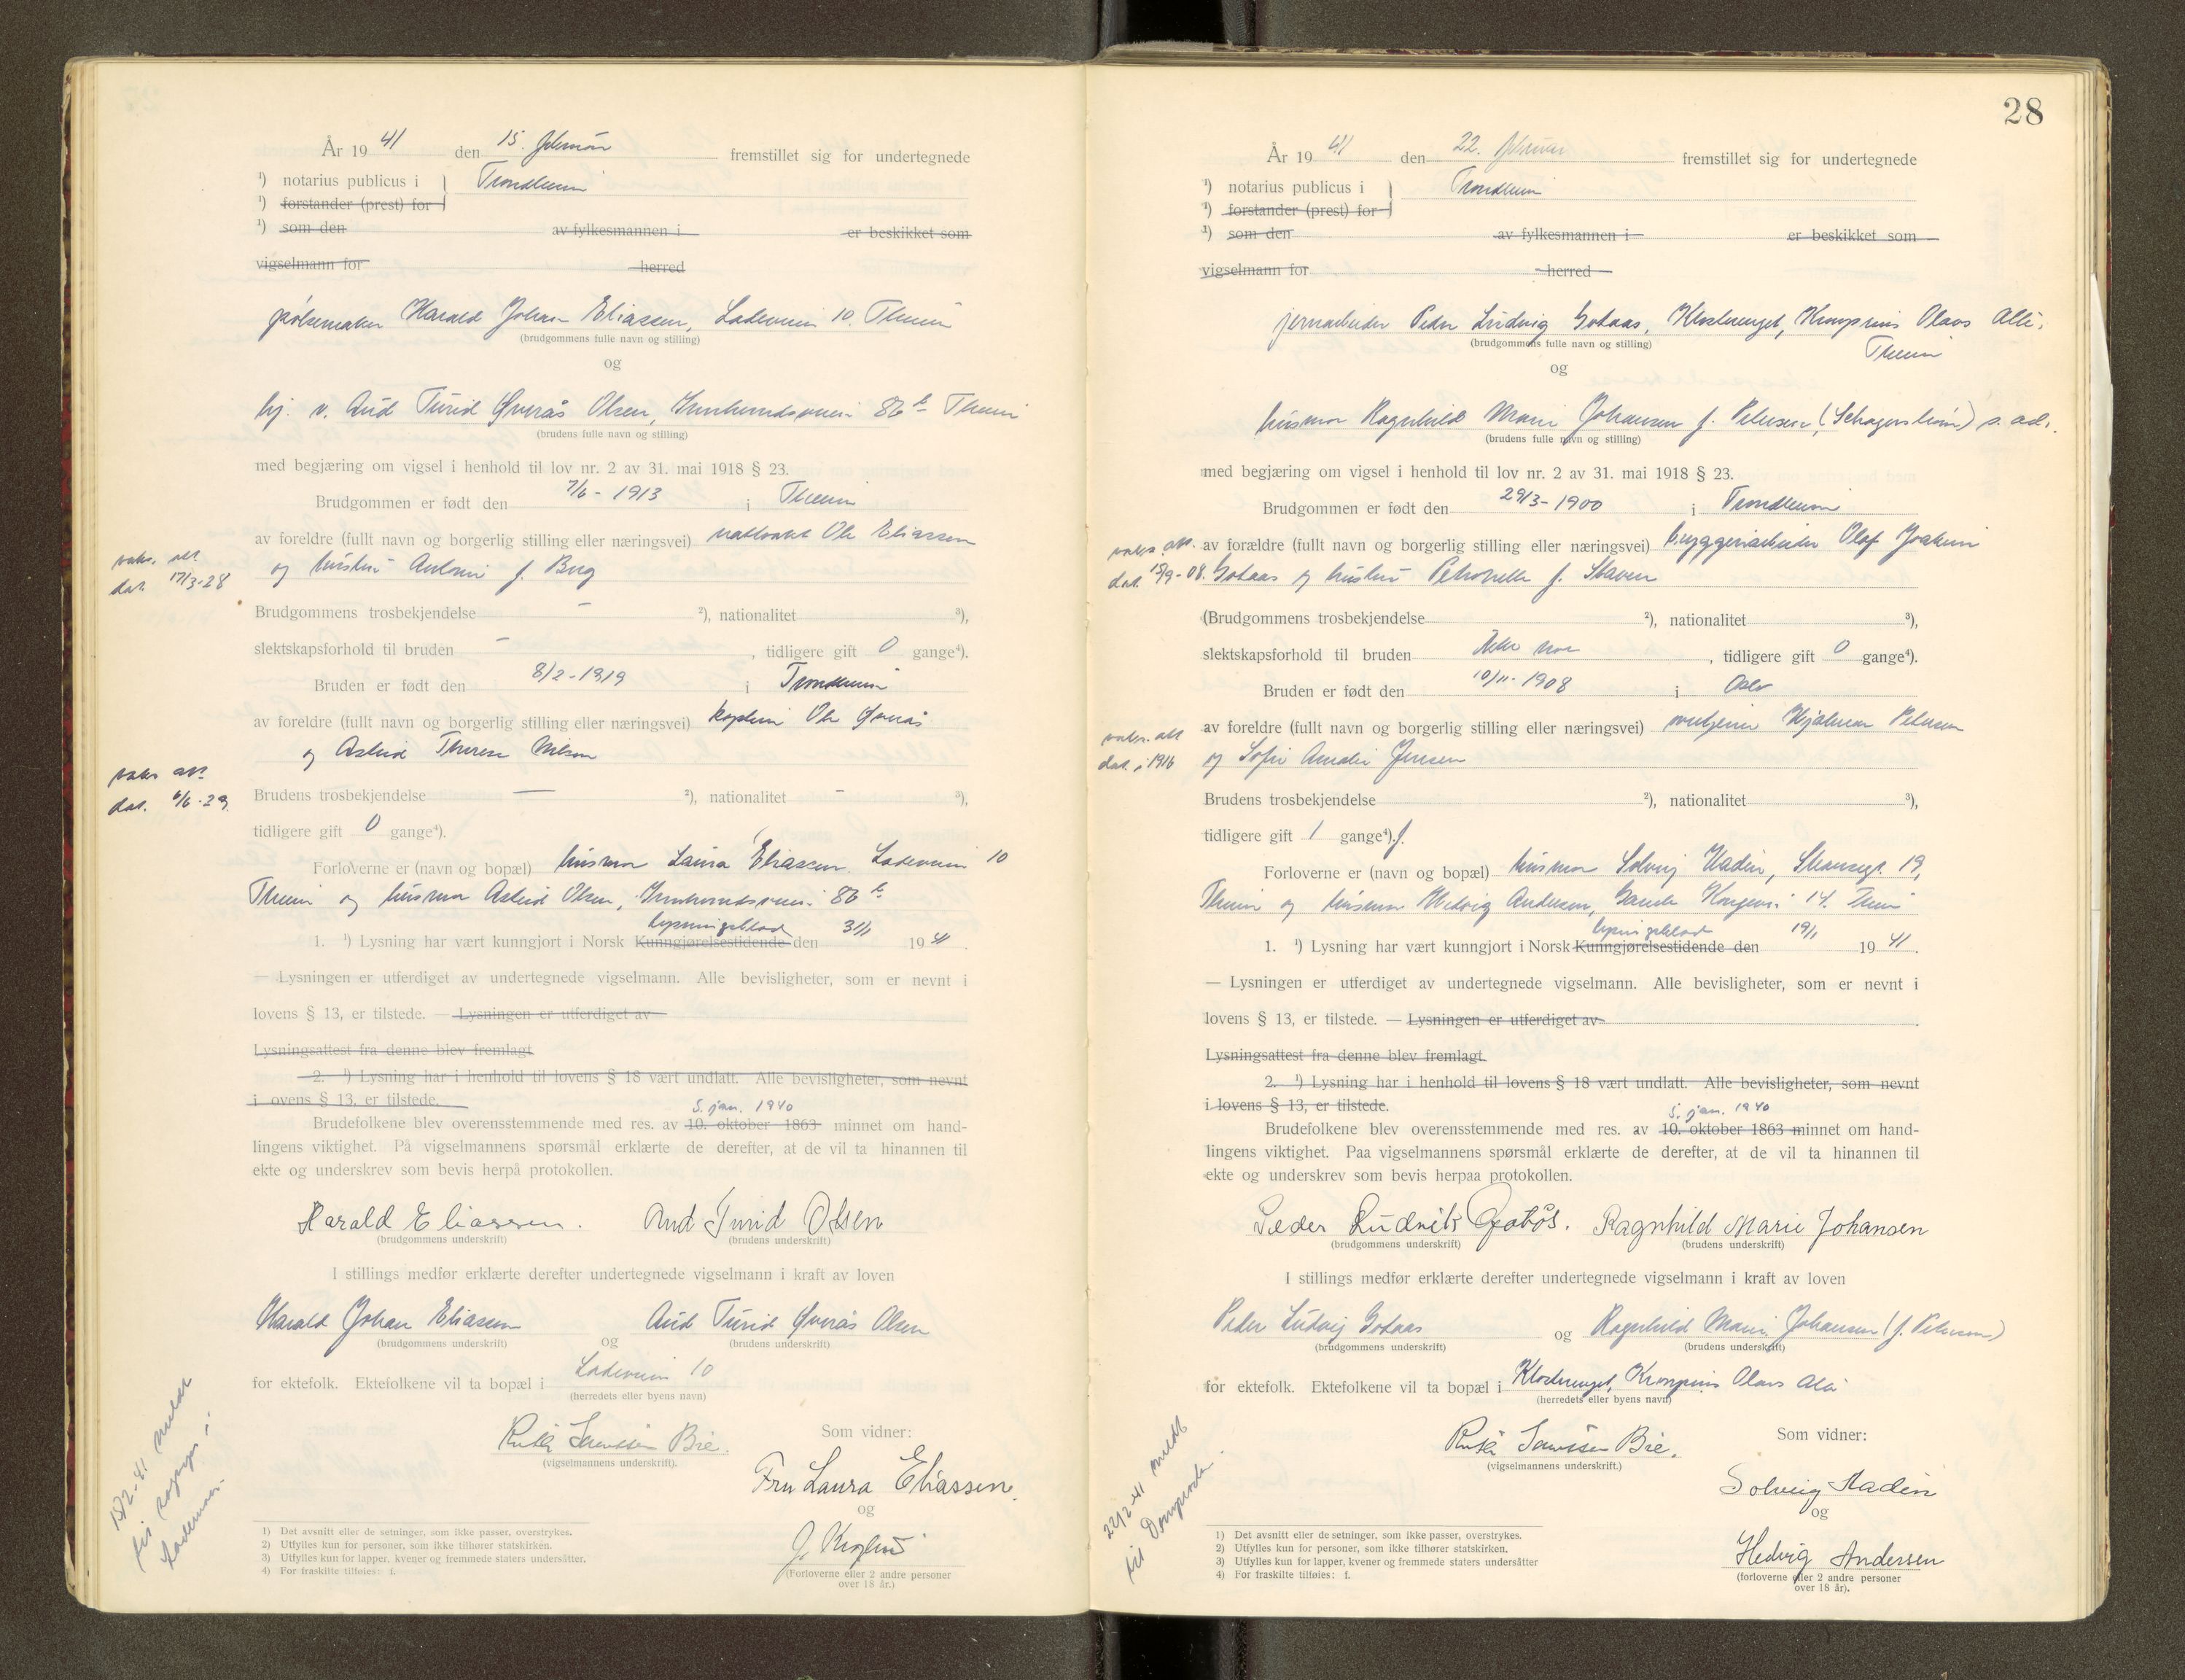 År 19 41 den 15. februar fremstillet sig for undertegnede
¹) notarius publicus i } Trondheim
¹) forstander (prest) for
¹) som den av fylkesmannen i er beskikket som
vigselmann for herred
pølsemaker Harald Johan Eliassen, Ladeveien 10. Theim
(brudgommens fulle navn og stilling)
og
hj. v. Aud Turid Øverås Olsen, Innherredsveien 86 b Theim
(brudens fulle navn og stilling)
med begjæring om vigsel i henhold til lov nr. 2 av 31. mai 1918 § 23.
Brudgommen er født den 7/6 - 1913 i Theim
av foreldre (fullt navn og borgerlig stilling eller næringsvei) nattvakt Ole Eliassen
vaks. att. dat. 17/3-28
og hustru Antonie f. Berg
Brudgommens trosbekjendelse - ²), nationalitet ³),
slektskapsforhold til bruden - , tidligere gift 0 gange⁴).
Bruden er født den 8/2 - 1919 i Trondheim
av foreldre (fullt navn og borgerlig stilling eller næringsvei) kaptein Ole Øverås
og Astrid Therese Nilsen
vaks att. dat. 6/6-29.
Brudens trosbekjendelse — ²), nationalitet - ³),
tidligere gift 0 gange⁴).
Forloverne er (navn og bopæl) husmor Laura Eliassen. Ladeveien 10
Theim og husmor Astrid Olsen, Innherredsveien 86 b
lysningsblad
1. ¹) Lysning har vært kunngjort i Norsk Kunngjørelsestidende den 31/1 19 41
— Lysningen er utferdiget av undertegnede vigselmann. Alle bevisligheter, som er nevnt i
lovens § 13, er tilstede. — Lysningen er utferdiget av
Lysningsattest fra denne blev fremlagt
2. ¹) Lysning har i henhold til lovens § 18 vært undlatt. Alle bevisligheter, som nevnt
i ovens § 13, er tilstede.
5. jan. 1940
Brudefolkene blev overensstemmende med res. av 10. oktober 1863 minnet om hand-
lingens viktighet. På vigselmannens spørsmål erklærte de derefter, at de vil ta hinannen til
ekte og underskrev som bevis herpå protokollen.
Harald Eliassen. Aud Turid Olsen
(brudgommens underskrift) (brudens underskrift)
I stillings medfør erklærte derefter undertegnede vigselmann i kraft av loven
Harald Johan Eliassen og Aud Turid Øverås Olsen
(brudgommens underskrift) (brudens underskrift)
for ektefolk. Ektefolkene vil ta bopæl i Ladeveien 10
(herredets eller byens navn)
Som vidner:
Bie.
(vigselmannens underskrift).
Fru Laura Eliassen.
og
(Forloverne eller 2 andre personer
over 18 år.)
15/2-41 meldt
til sogneprs. i
Lademoen.
1) Det avsnitt eller de setninger, som ikke passer, overstrykes.
2) Utfylles kun for personer, som ikke tilhører statskirken.
3) Utfylles kun for lapper, kvener og fremmede staters undersåtter.
4) For fraskilte tilføies: f.
28
År 19 41 den 22. februar fremstillet sig for undertegnede
¹) notarius publicus i } Trondheim
¹) forstander (prest) for
¹) som den av fylkesmannen i er beskikket som
vigselmann for herred
jernarbeider Peder Ludvig Gotaas, Klosterenget, Kronprins Olavs Allé.
Theim
(brudgommens fulle navn og stilling)
og
husmor Ragnhild Marie Johansen f. Petersen s. ad.
(brudens fulle navn og stilling)
med begjæring om vigsel i henhold til lov nr. 2 av 31. mai 1918 § 23.
Brudgommen er født den 29/3 - 1900 i Trondheim
av forældre (fullt navn og borgerlig stilling eller næringsvei) bryggeriarbeider Olaf Joakim
vaks. att. dat. 15/9-08.
Gotaas og hustru Petronelle f. Staven
(Brudgommens trosbekjendelse ²), nationalitet ³),
slektskapsforhold til bruden Ikke noe , tidligere gift 0 gange⁴).
Bruden er født den 10/11 - 1908 i Oslo
av foreldre (fullt navn og borgerlig stilling eller næringsvei) Hjalmar Petersen
vaks. att dat. i 1916
og Sofie Amalie Jensen
Brudens trosbekjendelse ²), nationalitet ³),
tidligere gift 1 gange⁴). f.
Forloverne er (navn og bopæl) husmor Solveig Hadin, 19,
Theim og husmor Hedvig Andersen, Gamle Kongevei 14. Theim
lysningsblad
1. ¹) Lysning har vært kunngjort i Norsk Kunngjørelsestidende den 19/1 19 41.
— Lysningen er utferdiget av undertegnede vigselmann. Alle bevisligheter, som er nevnt i
lovens § 13, er tilstede. — Lysningen er utferdiget av .
Lysningsattest fra denne blev fremlagt
2. ¹) Lysning har i henhold til lovens § 18 vært undlatt. Alle bevisligheter, som nevnt
i lovens § 13, er tilstede.
5. jan. 1940
Brudefolkene blev overensstemmende med res. av 10. oktober 1863 minnet om hand-
lingens viktighet. Paa vigselmannens spørsmål erklærte de derefter, at de vil ta hinannen til
ekte og underskrev som bevis herpaa protokollen.
Peder Ludvik Gotås. Ragnhild Marie Johansen
(brudgommens underskrift) (brudens underskrift)
I stillings medfør erklærte derefter undertegnede vigselmann i kraft av loven
Peder Ludvig Gotaas og Ragnhild Marie Johansen (f. Petersen)
(brudgommens underskrift) (brudens underskrift)
for ektefolk. Ektefolkene vil ta bopæl i Klosterenget, Kronprins Olavs Allé
(herredets eller byens navn)
Som vidner:
Bie.
(vigselmannens underskrift.)
Solveig Hadin
og
Hedvig Andersen
(forloverne eller 2 andre personer
over 18 år).
22/2-41 meldt
til Domprosten.
1) Det avsnitt eller de setninger, som ikke passer, overstrykes.
2) Utfylles kun for personer, som ikke tilhører statskirken.
3) Utfylles kun for lapper, kvener og fremmede staters undersåtter
4) For fraskilte tilføies: f.